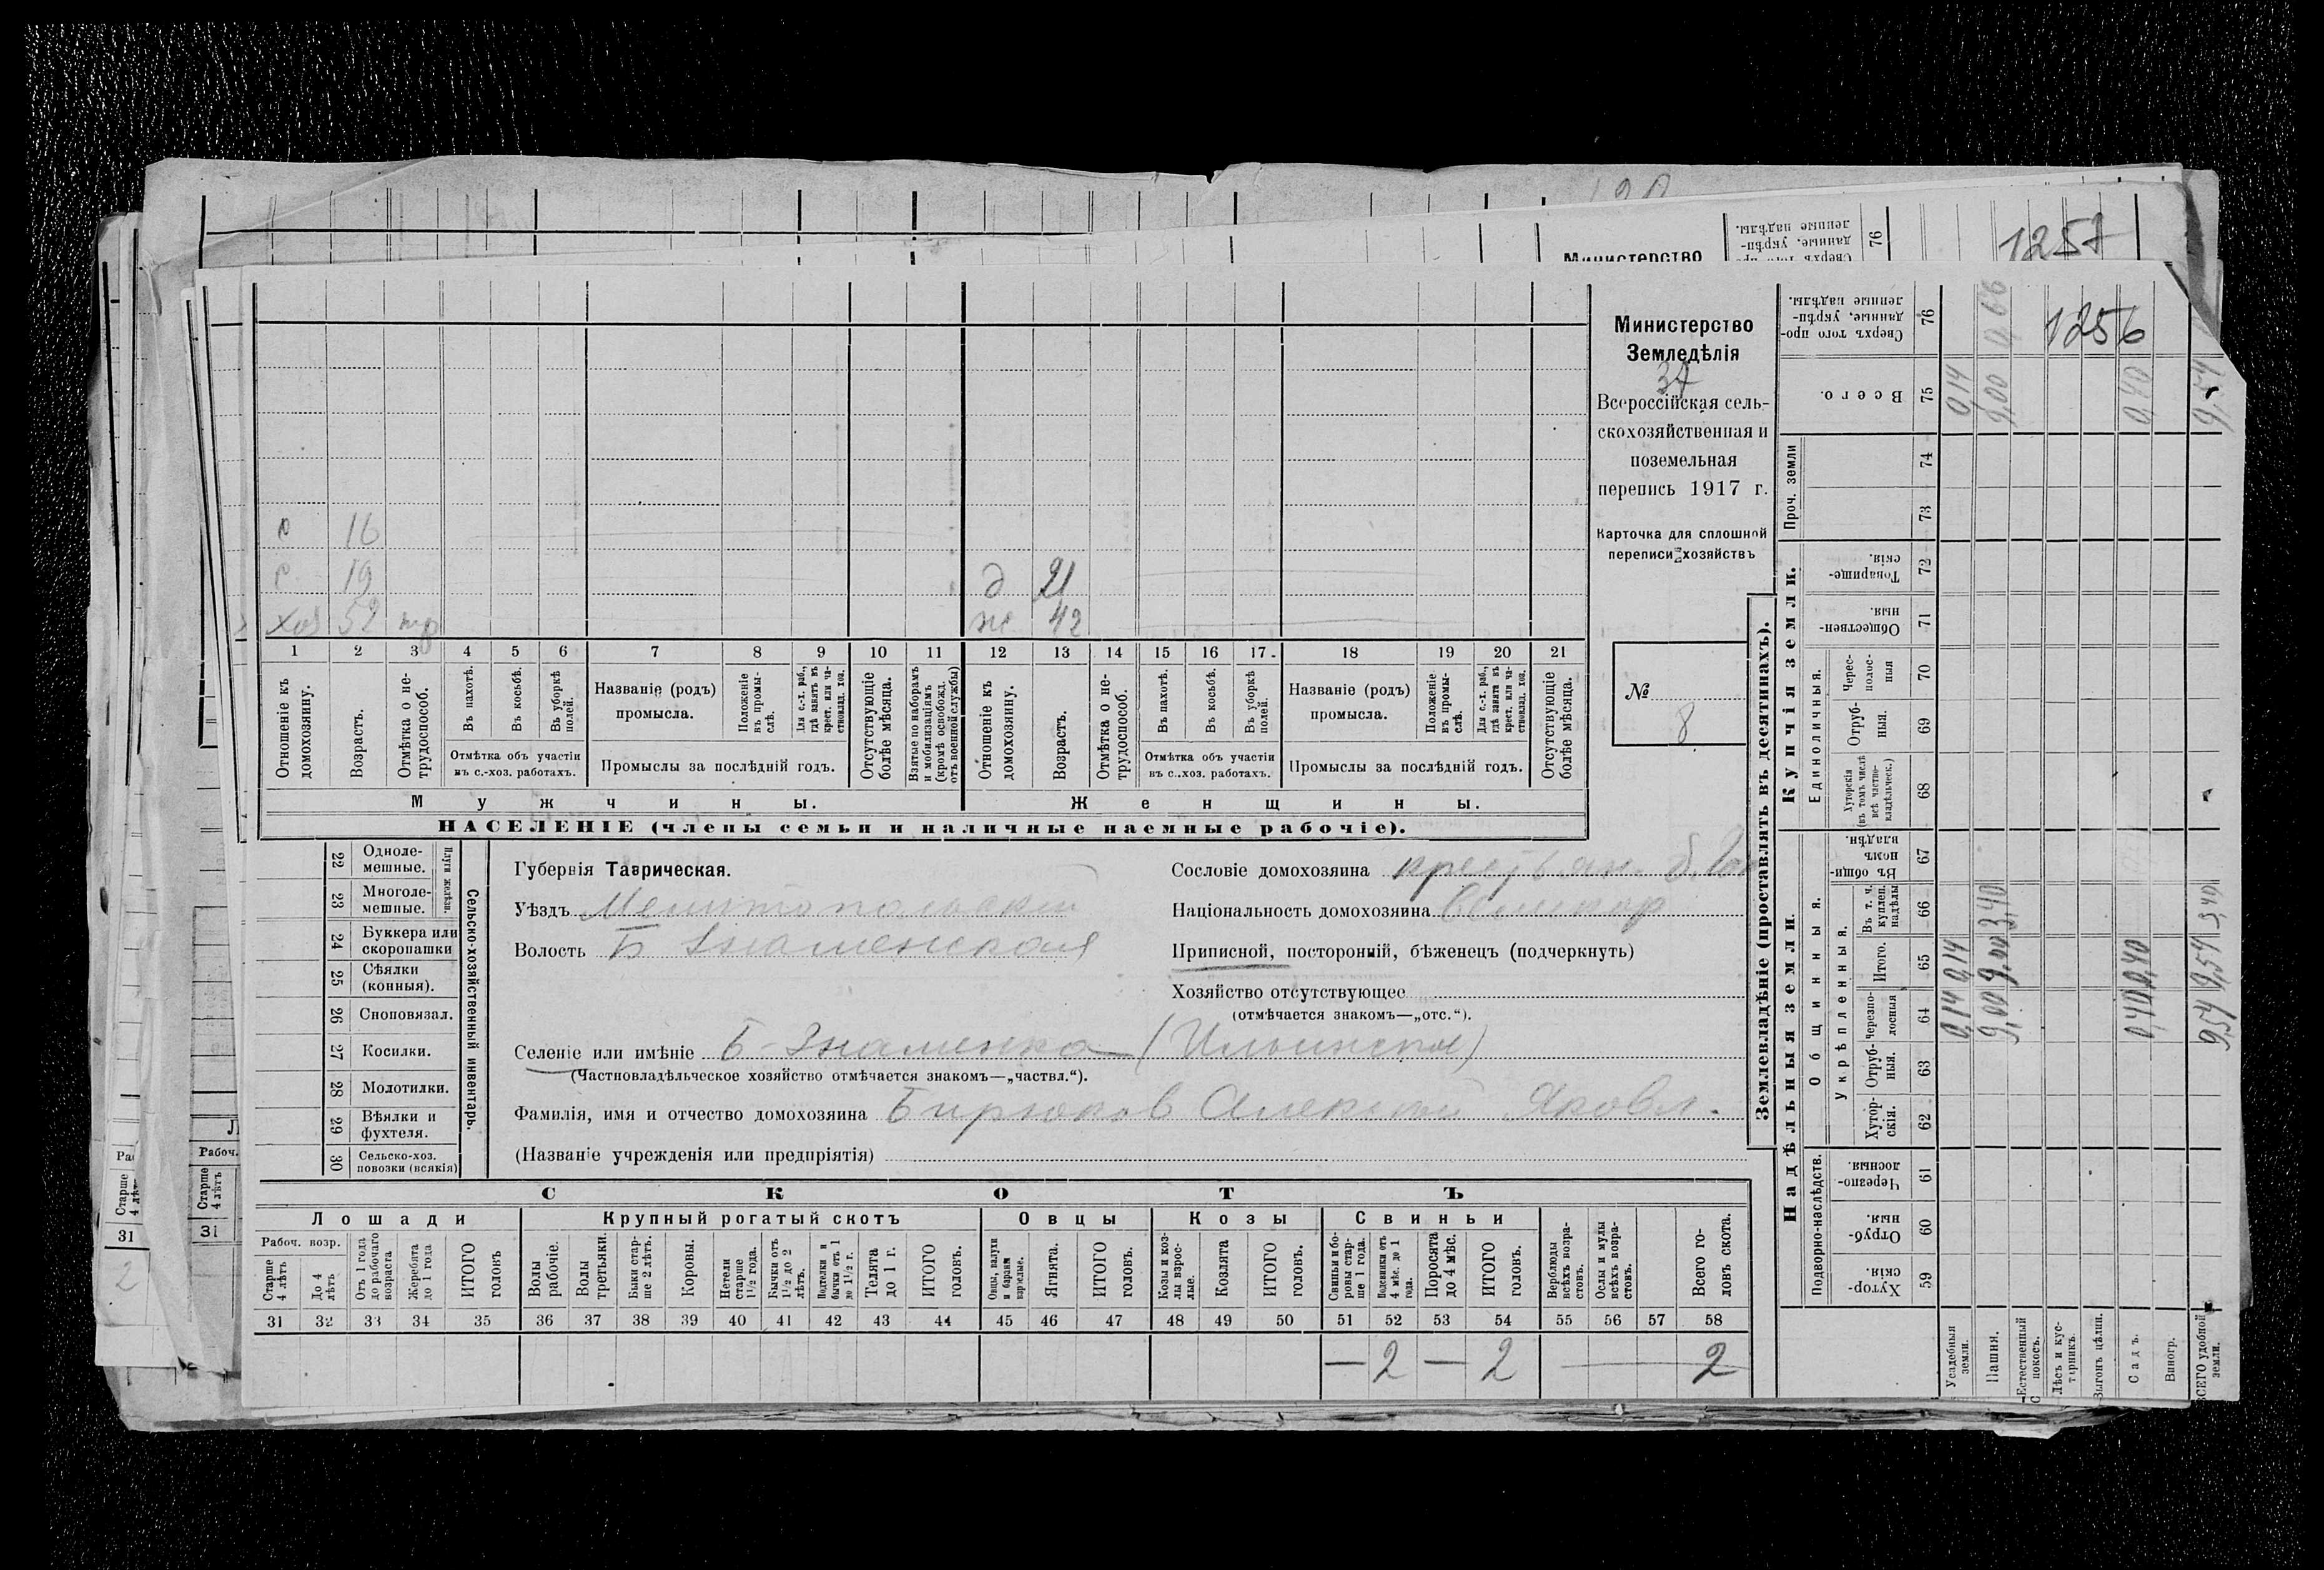 1257
1256
Министерство
Земледѣлія
37
Всероссійская сель-
скохозяйственная и
поземельная
перепись 1917 г.
Карточка для сплошной
переписи хозяйствъ
№
8
с 16
с 19 д 21
хоз 52 тр ж 42
1 2 3 4 5 6 7 8 9 10 11 12 13 14 15 16 17 18 19 20 21
Отношеніе къ домохозяину.
Возрастъ.
Отмѣтка о не-трудоспособ.
Въ пахотѣ.
Въ косьбѣ.
Въ уборкѣ полей.
Отмѣтка объ участіи въ с.-хоз. работахъ.
Названіе (родъ) промысла.
Положеніе въ промы-слѣ.
Для с.-х. раб., гдѣ занятъ въ крест. или ча-стновлад. хоз.
Промыслы за послѣдній годъ.
Отсутствующіе болѣе мѣсяца.
Взятые по наборамъ и мобилизаціямъ (кромѣ освобожд. отъ военной службы)
Отношеніе къ домохозяину.
Возрастъ.
Отмѣтка о не-трудоспособ.
Въ пахотѣ.
Въ косьбѣ.
Въ уборкѣ полей.
Отмѣтка объ участіи въ с.-хоз. работахъ.
Названіе (родъ) промысла.
Положеніе въ промы-слѣ.
Для с.-х. раб., гдѣ занята въ крест. или ча-стновлад. хоз.
Промыслы за послѣдній годъ.
Отсутствующіе болѣе мѣсяца.
Мужчины. Женщины.
НАСЕЛЕНІЕ (члены семьи и наличные наемные рабочіе).
22 Одноле-мешные.
23 Многоле-мешные.
Плуги желѣзн.
24 Буккера или скоропашки
25 Сѣялки (конныя).
26 Сноповязал.
27 Косилки.
28 Молотилки.
29 Вѣялки и фухтеля.
30 Сельско-хоз. повозки (всякія)
Сельско-хозяйственный инвентарь.
Губернія Таврическая.
Уѣздъ Мелитопольскій
Волость Б Знаменская
Сословіе домохозяина крестьян.
Національность домохозяина Великор
Приписной, посторонній, бѣженецъ (подчеркнуть)
Хозяйство отсутствующее
(отмѣчается знакомъ—„отс.“).
Селеніе или имѣніе Б-Знаменка (Ильинское)
(Частновладѣльческое хозяйство отмѣчается знакомъ—„частвл.“).
Фамилія, имя и отчество домохозяина Бирюков Алексей Яковл.
(Названіе учрежденія или предпріятія)
СКОТЪ
Лошади Крупный рогатый скотъ Овцы Козы Свиньи
Рабоч. возр.
Старше 4 лѣтъ
До 4 лѣтъ
Отъ 1 года до рабочаго возраста
Жеребята до 1 года
ИТОГО головъ
Волы рабочіе.
Волы третьяки.
Быки стар-ше 2 лѣтъ.
Коровы.
Нетели старше 1½ года.
Бычки отъ 1½ до 2 лѣтъ.
Подтелки и бычки отъ 1 до 1½ г.
Телята до 1 г.
ИТОГО головъ.
Овцы, валухи и бараны взрослые.
Ягнята.
ИТОГО головъ.
Козы и коз-лы взрос-лые.
Козлята
ИТОГО головъ.
Свиньи и бо-ровы стар-ше 1 года.
Подсвинки отъ 4 мѣс. до 1 года.
Поросята до 4 мѣс.
ИТОГО головъ.
Верблюды всѣхъ возра-стовъ.
Ослы и мулы всѣхъ возра-стовъ.
Всего го-ловъ скота.
31 32 33 34 35 36 37 38 39 40 41 42 43 44 45 46 47 48 49 50 51 52 53 54 55 56 57 58
— 2 — 2 — 2
Землевладѣніе (проставлять въ десятинахъ).
Купчія земли.
Надѣльныя земли.
Сверхъ того про-данные, укрѣп-ленные надѣлы. 76
Всего. 75
Проч. земли 74 73
Товарище-скія. 72
Обществен-ныя. 71
Единоличныя.
Черес-полос-ныя 70
Отруб-ныя. 69
Хуторскія (въ томъ числѣ всѣ частно-владѣльческ.) 68
Общинныя.
Въ общин-номъ владѣн. 67
Укрѣпленныя.
Въ т. ч. куплен. надѣлы 66
Итого. 65
Черезпо-лосныя 64
Отруб-ныя. 63
Хутор-скія. 62
Подворно-наслѣдств.
Черезпо-лосныя. 61
Отруб-ныя. 60
Хутор-скія. 59
Усадебныя земли. 0,14 0,14 0,14
Пашня. 9,00 9,00 3,40 9,00 0,66
Естественный покосъ.
Лѣсъ и кус-тарникъ.
Выгонъ цѣлин.
Садъ. 0,40 0,40 0,40
Виногр.
ВСЕГО удобной земли. 9,54 9,54 3,40 9,54